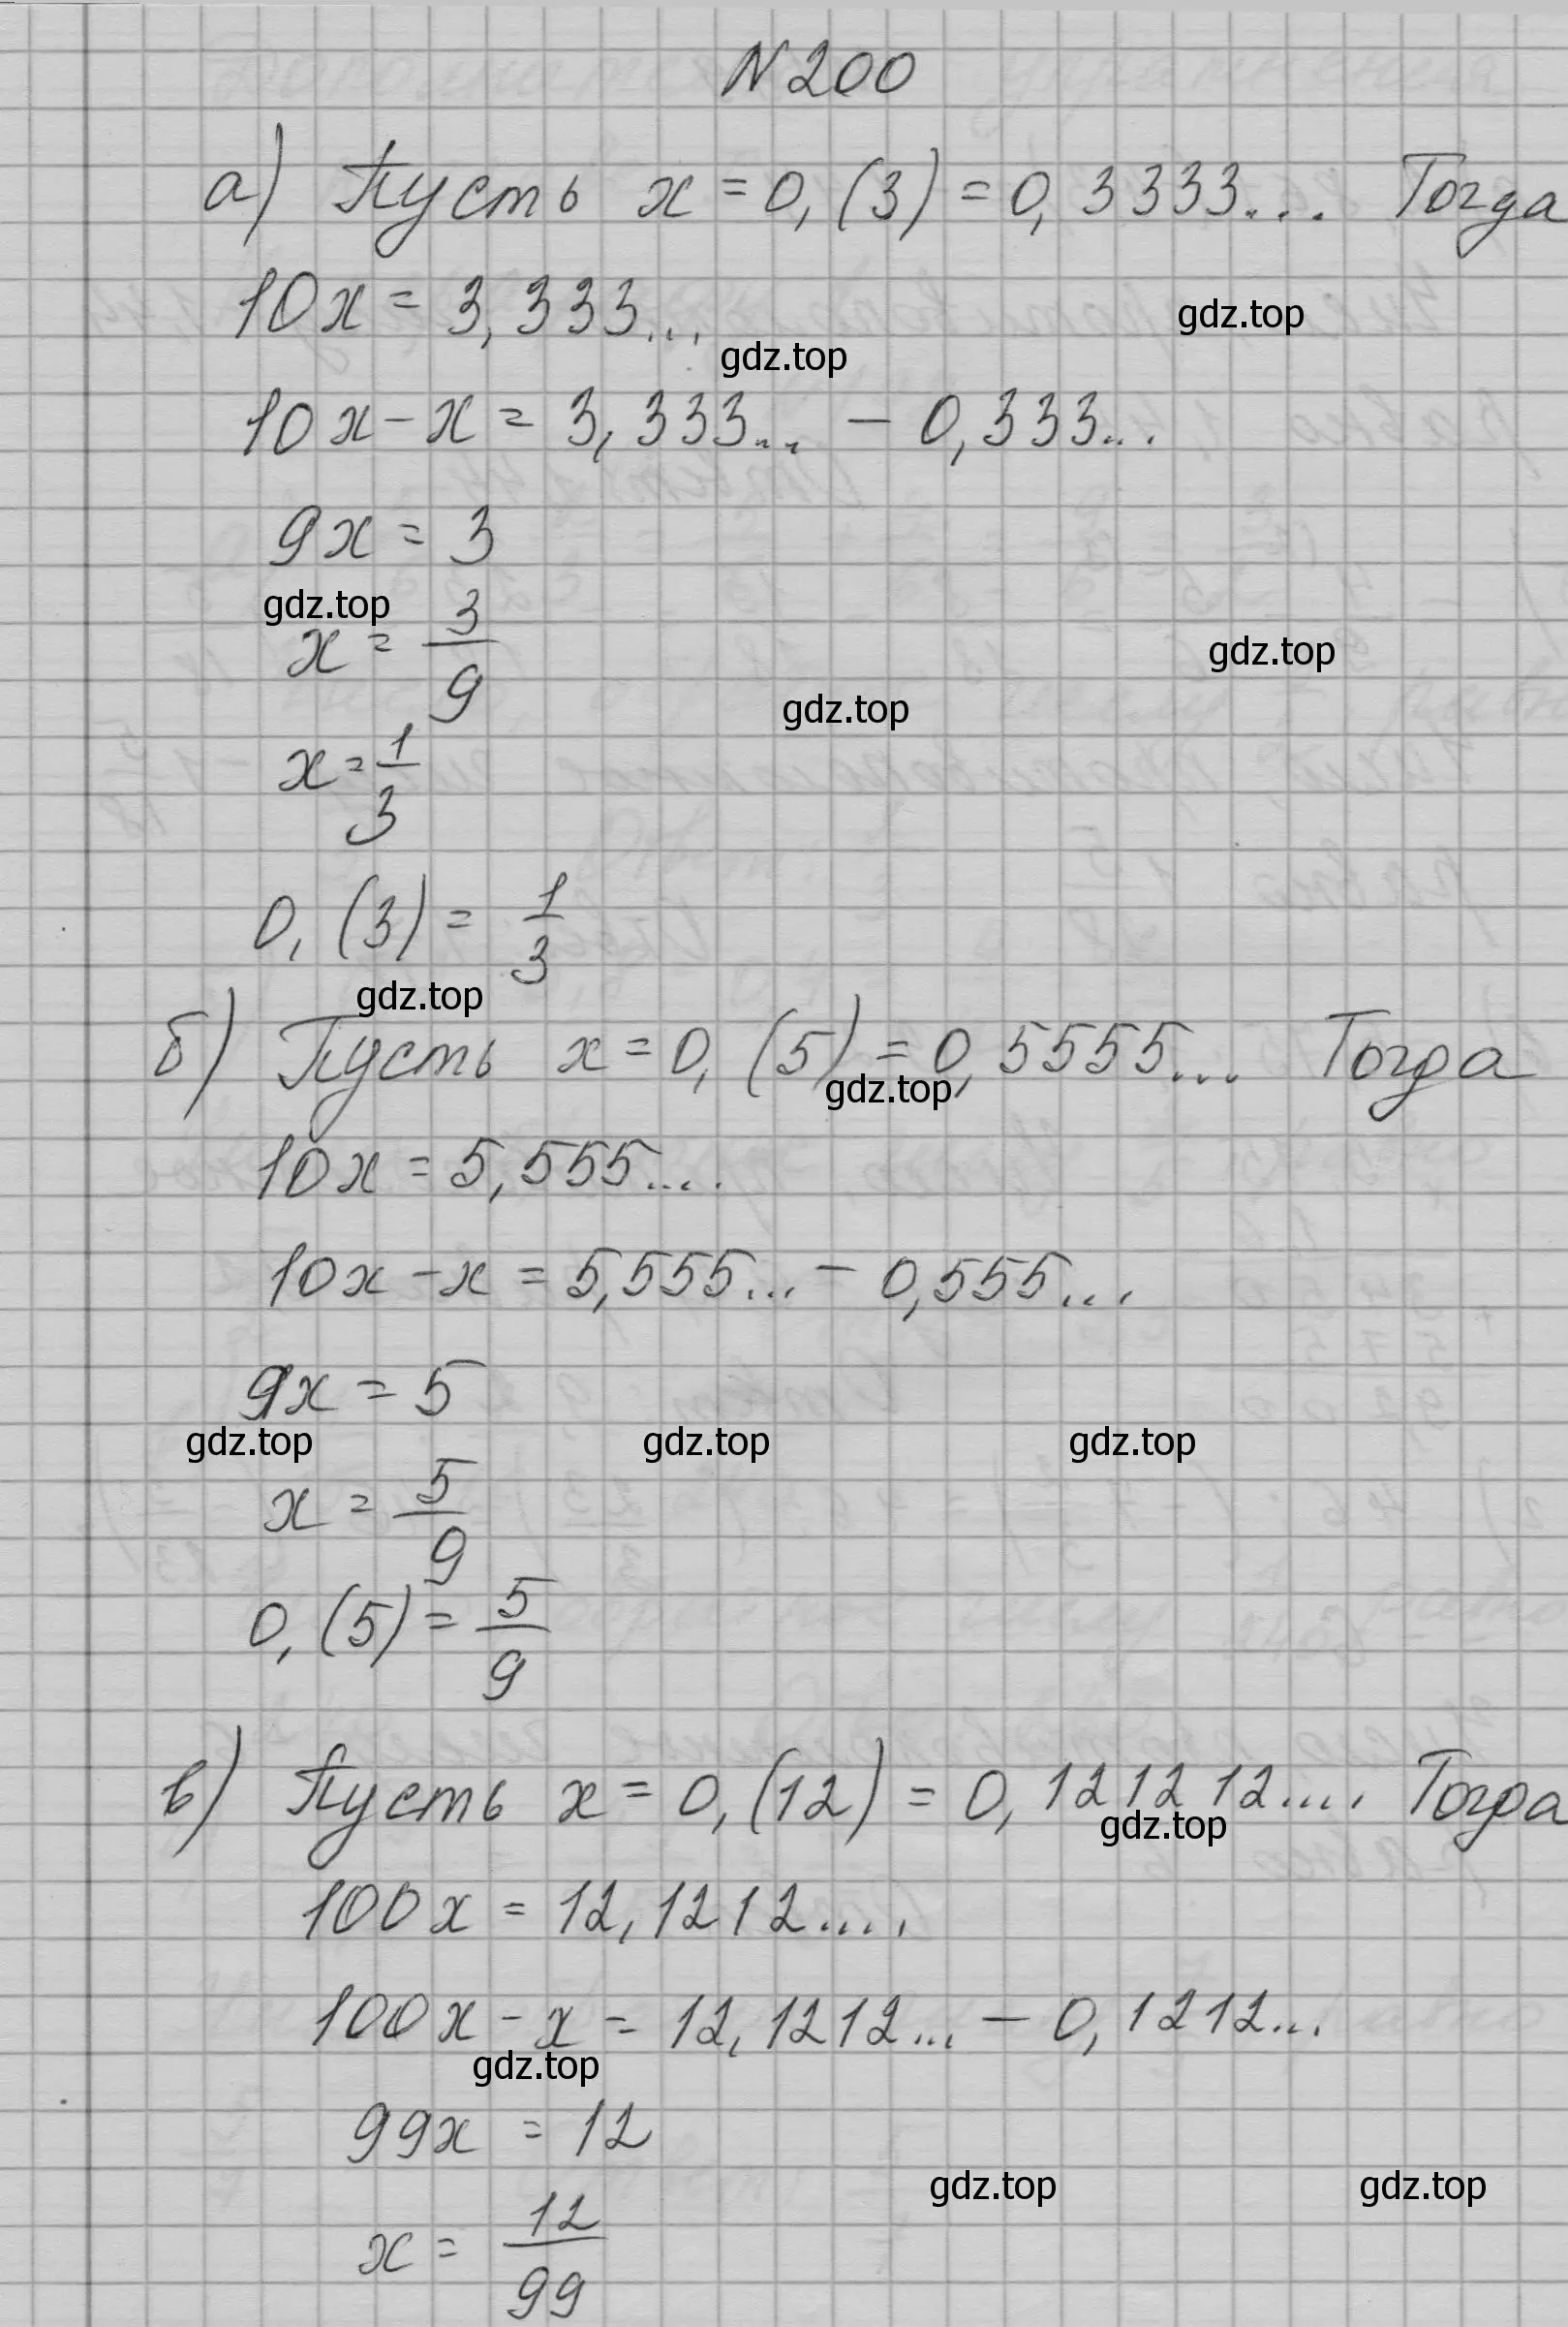 N 200
а) Пусть x = 0,(3) = 0,3333... Тогда
10x = 3,333...
gdz.top
gdz.top
10x - x = 3,333... - 0,333...
9x = 3
gdz.top
x = 3/9
gdz.top
gdz.top
x = 1/3
0,(3) = 1/3
gdz.top
б) Пусть x = 0,(5) = 0,5555... Тогда
gdz.top
10x = 5,555....
10x - x = 5,555... - 0,555...
9x = 5
gdz.top gdz.top gdz.top
x = 5/9
0,(5) = 5/9
в) Пусть x = 0,(12) = 0,121212.... Тогда
gdz.top
100x = 12,1212....
100x - x = 12,1212... - 0,1212...
gdz.top
99x = 12
gdz.top gdz.top
x = 12/99